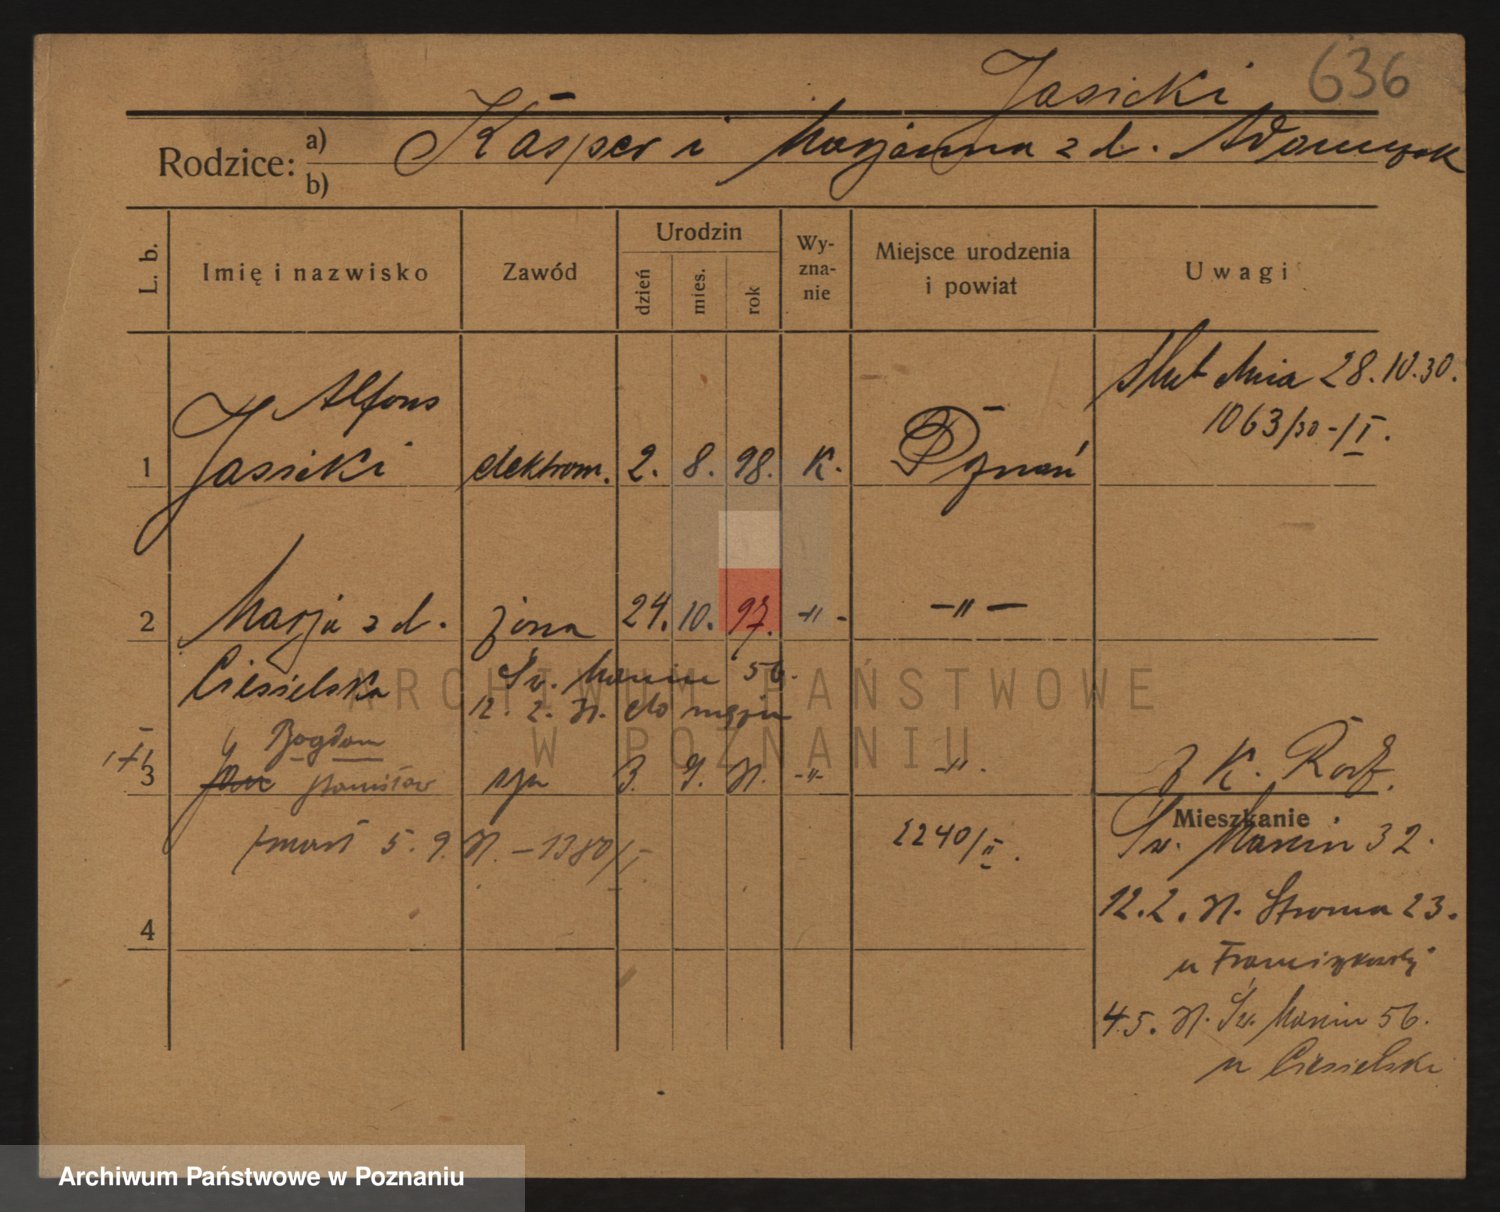 Jasicki 636
Rodzice: a) Kasper i Marjanna z d. Adamczak
b)
L. b. Imię i nazwisko Zawód Urodzin dzień mies. rok Wy-zna-nie Miejsce urodzenia i powiat Uwagi
ślub dnia 28.10.30.
1063/30-/I.
Alfons
1 Jasicki elektrom. 2. 8. 98. K. Poznań
2 Marja z d. żona 24. 10. 97. -"- -"-
Ciesielska Św. Marcin 56.
12. 2. 31. do męża
Bogdan
3 Stanisław syn 3. 9. 31. -"- -"-
z K. Rodz.
Mieszkanie
zmarł 5. 9. 31. - 1380/I. 2240/II. Św. Marcin 32.
12.2.31. Stroma 23.
4
u
4.5.31. Św. Marcin 56.
u Ciesielski
ARCHIWUM PAŃSTWOWE
W POZNANIU
Archiwum Państwowe w Poznaniu